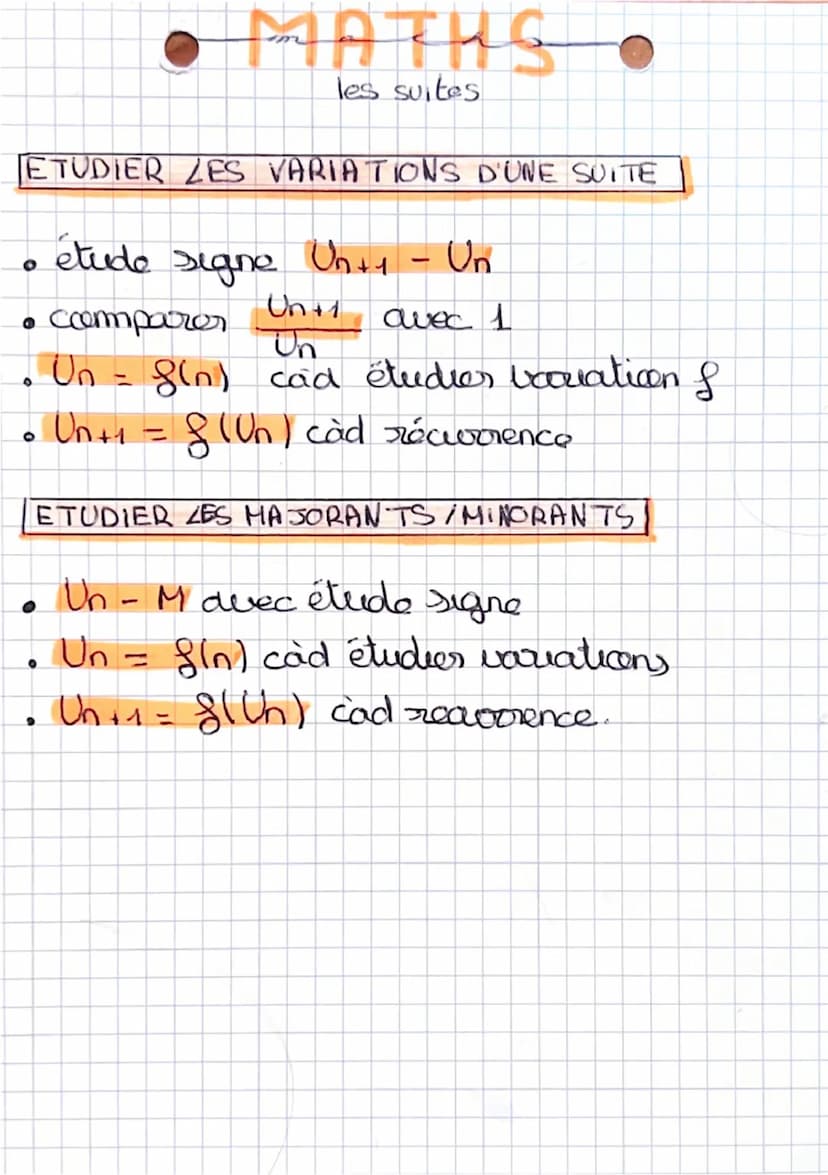 MATHS
maths
les suites
ETUDIER LES VARIATIONS D'UNE SUITE
• étude signe Un+1 - Un
• comparer Un+1 / Un avec 1
• Un = f(n) càd étudier variation f
• Un+1 = f(Un) càd récurrence
ETUDIER LES MAJORANTS/MINORANTS
• Un - M avec étude signe
• Un = f(n) càd étudier variations
• Un+1 = f(Un) càd récurrence.